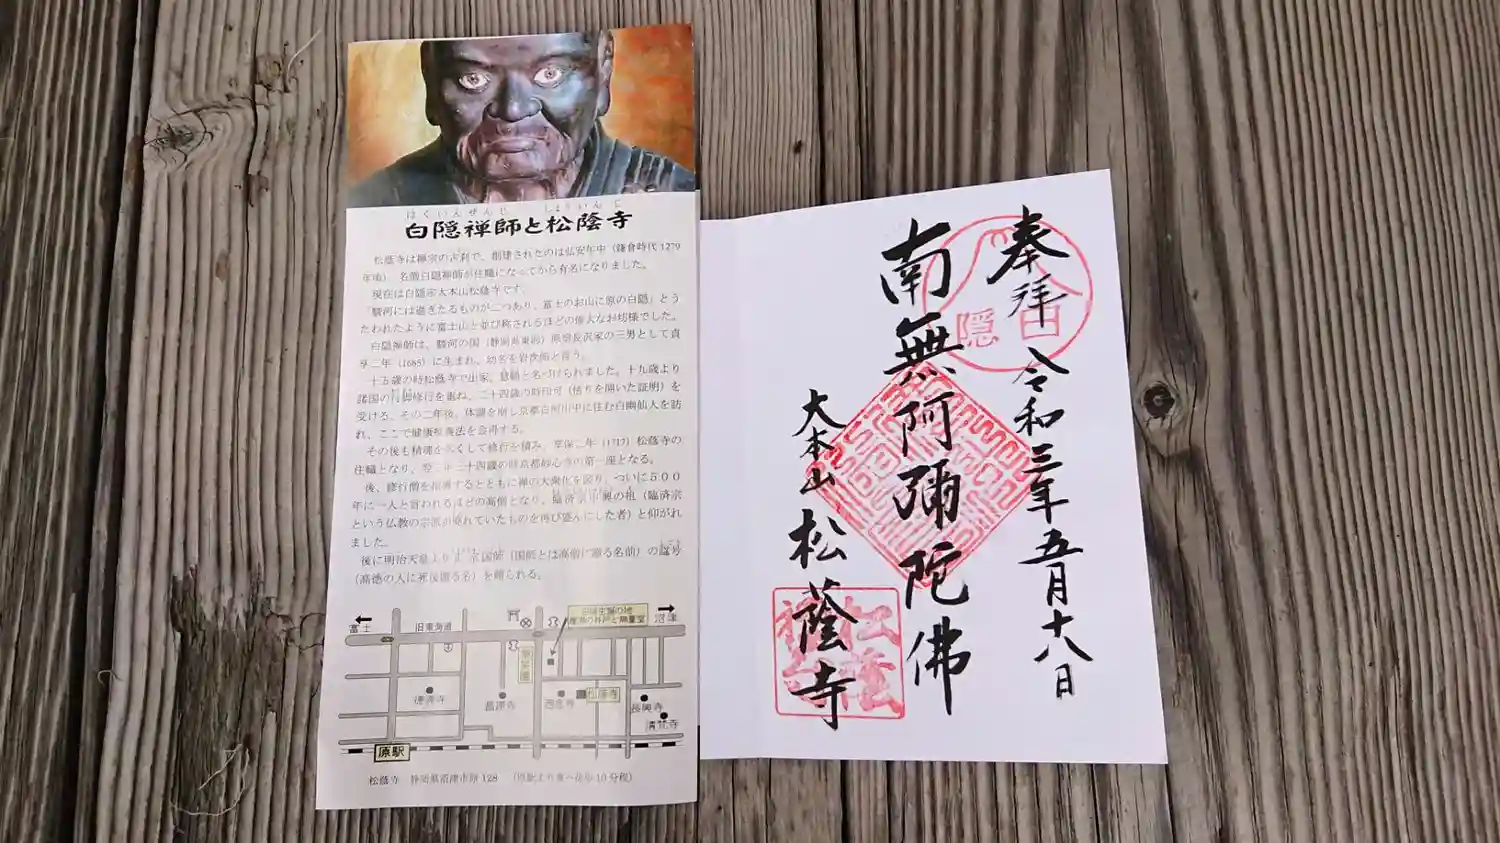 はくいんぜんじ　しょういんじ
白隠禅師と松蔭寺
松蔭寺は禅宗の古刹で、創建されたのは弘安年中（鎌倉時代1279
年頃）　名僧白隠禅師が住職になってから有名になりました。
現在は白隠宗大本山松蔭寺です。
「駿河には過ぎたるものが二つあり、富士のお山に原の白隠」とう
たわれたように富士山と並び称されるほどの偉大なお坊様でした。
白隠禅師は、駿河の国（静岡県東部）原宿長沢家の三男として貞
享二年（1685）に生まれ、幼名を岩次郎と言う。
十五歳の時松蔭寺で出家、慧鶴と名づけられました。十九歳より
諸国の行脚修行を重ね、二十四歳の時印可（悟りを開いた証明）を
受ける。その二年後、体調を崩し京都白河山中に住む白幽仙人を訪
れ、ここで健康 法を会得する。
その後も精魂を くして修行を積み、享保二年（1717）松蔭寺の
住職となり、翌三年三十四歳の時京都妙心寺の第一座となる。
後、修行僧を指導するとともに禅の大衆化を図り、ついに５００
年に一人と言われるほどの高僧となり、臨済宗中興の祖（臨済宗
という仏教の宗派が廃れていたものを再び盛んにした者）と仰がれ
ました。
後に明治天皇より正宗国師（国師とは高僧に贈る名前）の諡号
（高徳の人に死後贈る名）を贈られる。
富士
旧東海道
沼津
徳源寺
昌源寺
西念寺
松蔭寺
長興寺
清梵寺
原駅
松蔭寺　静岡県沼津市原128　（原駅より東へ徒歩10分程）
奉拝　令和三年五月十八日
白隠
南無阿彌陀佛
大本山　松蔭寺